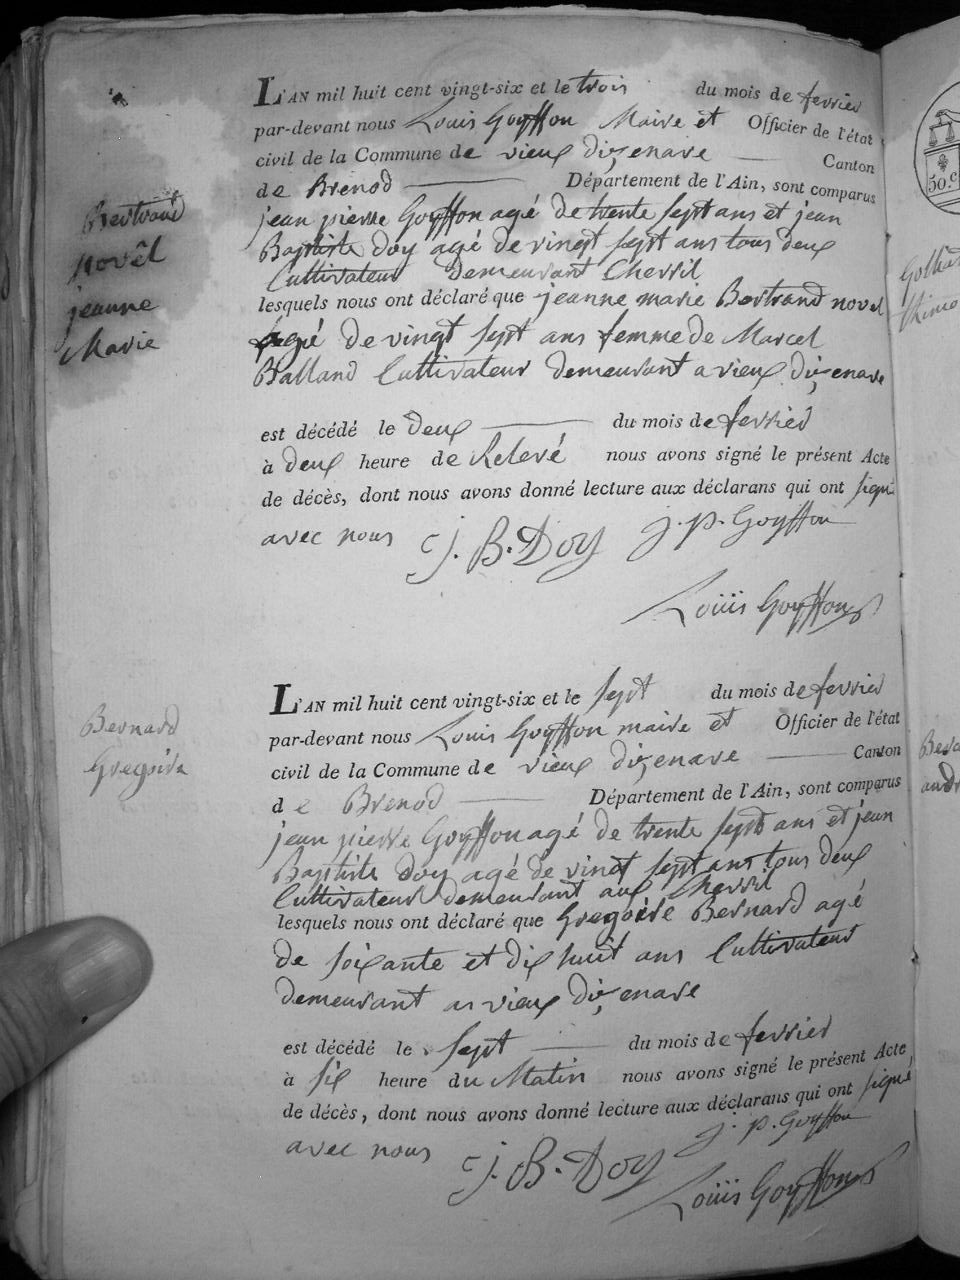 L'AN mil huit cent vingt-six et le trois du mois de fevrier
par-devant nous Louis Goyffon Maire et Officier de l'état
civil de la Commune de vieux dizenave Canton
de Brenod Département de l'Ain, sont comparus
jean pierre Goyffon agé de trente sept ans et jean
Baptiste Doy agé de vingt sept ans tous deux
Cultivateur Demeurant Chevril
lesquels nous ont déclaré que jeanne marie Bertrand novel
agé de vingt sept ans femme de Marcel
Balland Cultivateur Demeurant a vieux dizenave
est décédé le Deux du mois de fevrier
à deux heure de Relevé nous avons signé le présent Acte
de décès, dont nous avons donné lecture aux déclarans qui ont signé
avec nous J. B. Doy J. P. Goyffon
Louis Goyffon
Bertrand
novêl
jeanne
Marie
L'AN mil huit cent vingt-six et le sept du mois de fevrier
par-devant nous Louis Goyffon maire et Officier de l'état
civil de la Commune de vieux dizenave Canton
de Brenod Département de l'Ain, sont comparus
jean pierre Goyffon agé de trente sept ans et jean
Baptiste Doy agé de vingt sept ans tous deux
Cultivateur demeurant aux Chevril
lesquels nous ont déclaré que Gregoire Bernard agé
de soixante et dix huit ans Cultivateur
demeurant a vieux dizenave
est décédé le sept du mois de fevrier
à six heure du Matin nous avons signé le présent Acte
de décès, dont nous avons donné lecture aux déclarans qui ont signé
avec nous J. B. Doy J. P. Goyffon
Louis Goyffon
Bernard
Gregoire
50.c